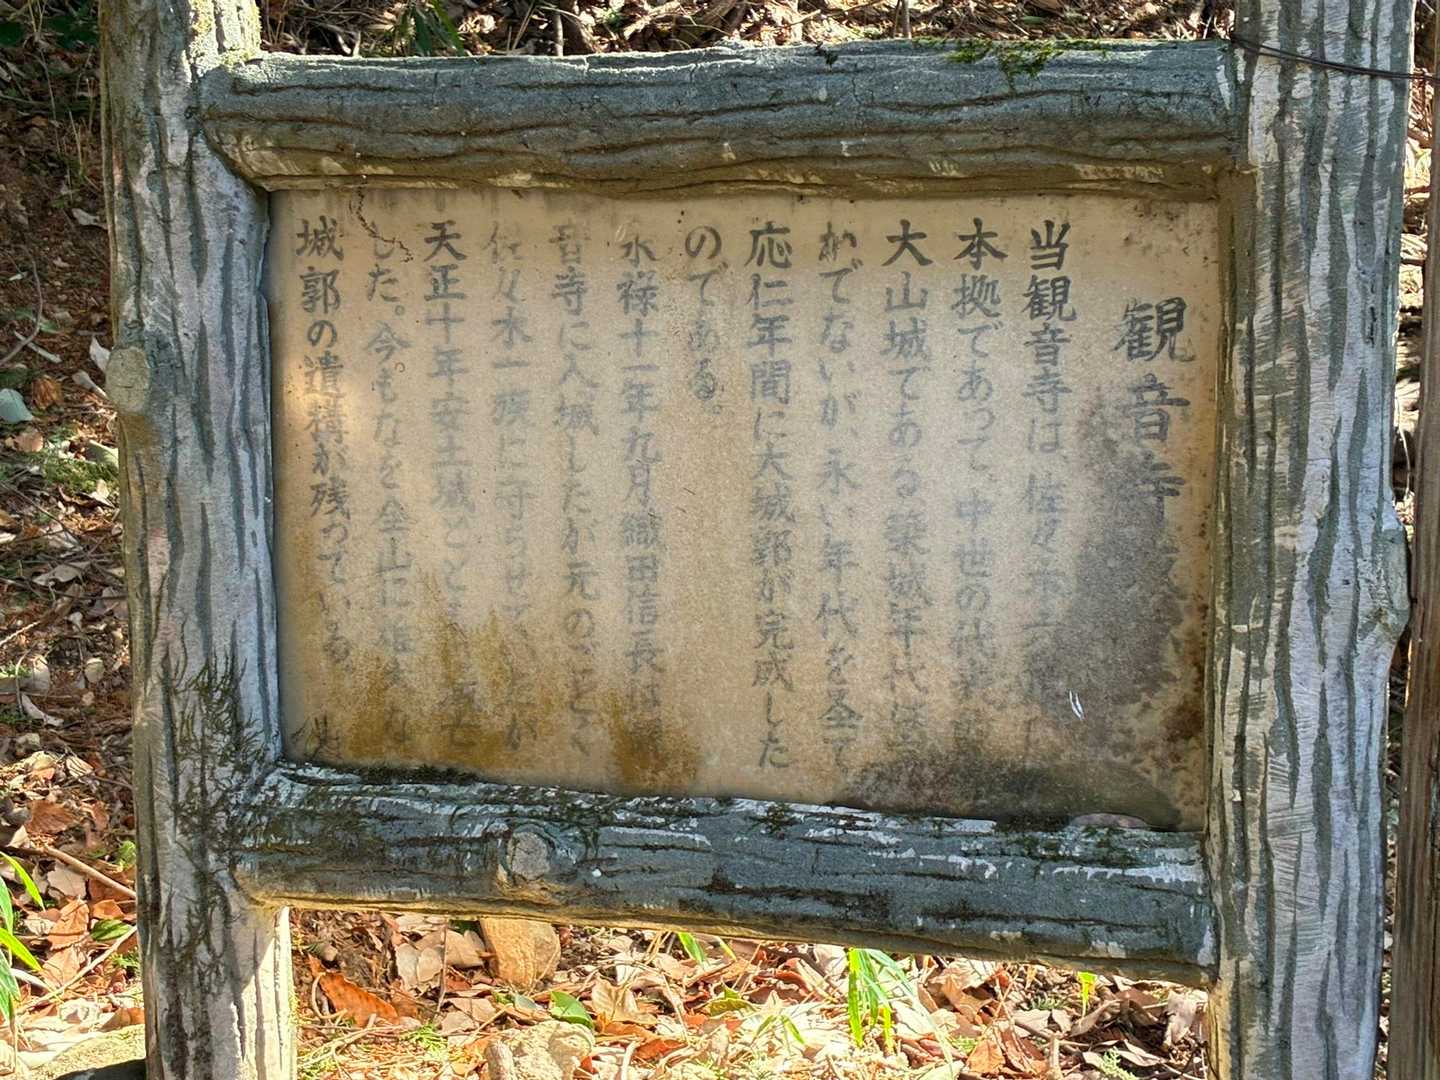 観音寺
当観音寺は、佐々木六
本拠であって、中世の代表
大山城である築城年代は
かでないが、永い年代を全て
応仁年間に大城郭が完成した
のである。
永禄十一年九月織田信長は
音寺に入城したが元のごとく
佐々木一族に守らせて
天正十年安土城とと
した。今。もなを全山に
城郭の遺構が残っている。